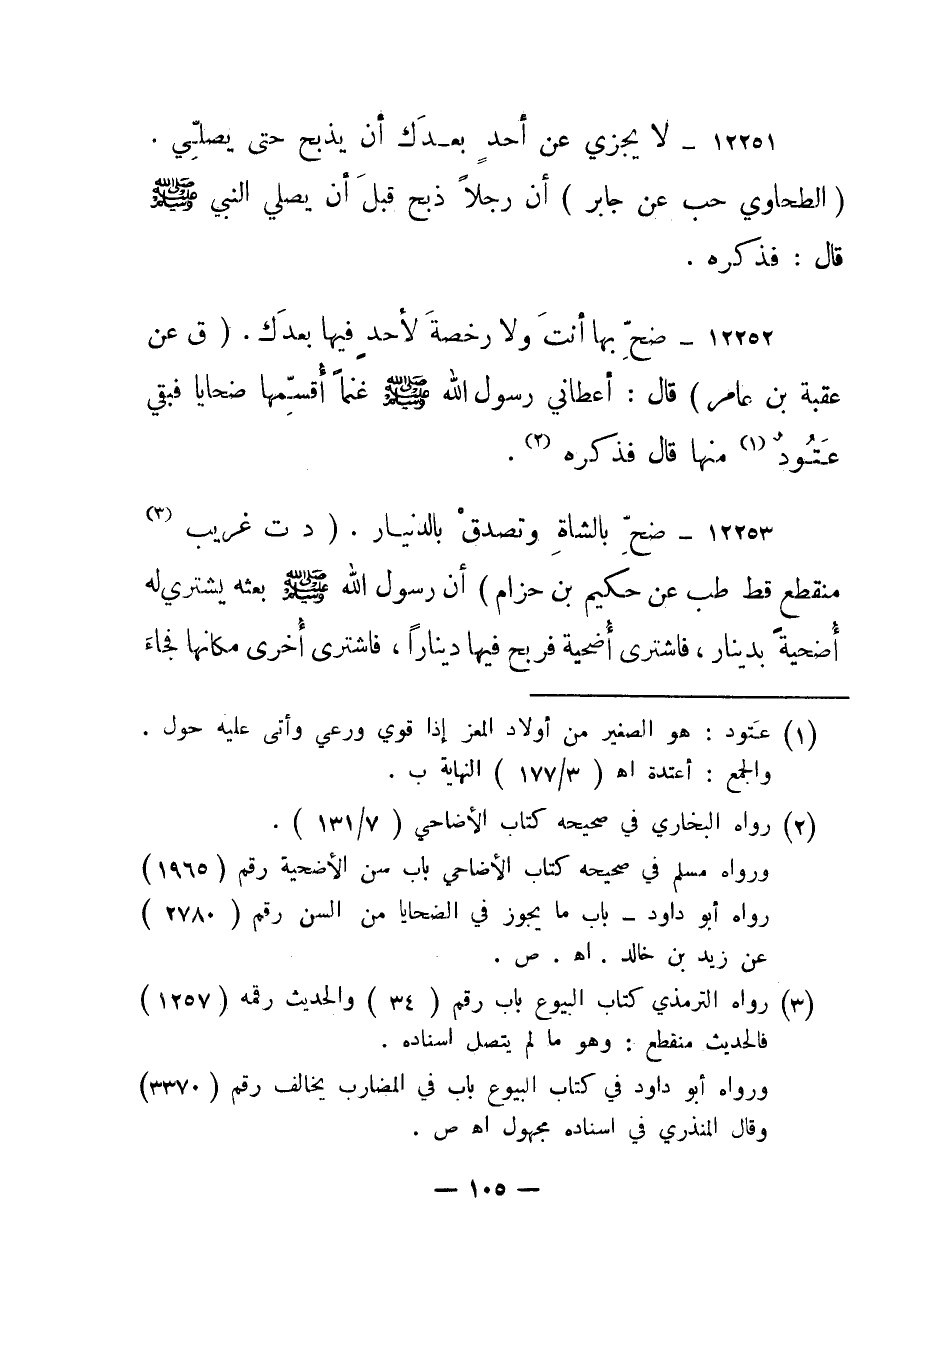 ١٢٢٥١ ـ لا يجزي عن أحدٍ بعـدَك أن يذبح حتى يصلّي .
( الطحاوي حب عن جابر ) أن رجلاً ذبح قبلَ أن يصلي النبي ﷺ
قال : فذكره .
١٢٢٥٢ ـ ضحِّ بها أنتَ ولا رخصةَ لأحدٍ فيها بعدَك . ( ق عن
عقبة بن عامر ) قال : أعطاني رسول الله ﷺ غنماً أُقسِّمها ضحايا فبقي
عَتُودٌ (١) منها قال فذكره (٢) .
١٢٢٥٣ ـ ضحِّ بالشاةِ وتصدقْ بالدنيـار . ( د ت غريب (٣)
منقطع قط طب عن حكيم بن حزام ) أن رسول الله ﷺ بعثه يشتري له
أُضحيةً بدينار ، فاشترى أُضحية فربح فيها ديناراً ، فاشترى أُخرى مكانها فجاءَ
(١) عتَود : هو الصغير من أولاد المعز إذا قوي ورعي وأتى عليه حول .
والجمع : أعتدة اه ( ١٧٧/٣ ) النهاية ب .
(٢) رواه البخاري في صحيحه كتاب الأضاحي ( ١٣١/٧ ) .
ورواه مسلم في صحيحه كتاب الأضاحي باب سن الأضحية رقم ( ١٩٦٥ )
رواه أبو داود ـ باب ما يجوز في الضحايا من السن رقم ( ٢٧٨٠ )
عن زيد بن خالد . اه . ص .
(٣) رواه الترمذي كتاب البيوع باب رقم ( ٣٤ ) والحديث رقمه ( ١٢٥٧ )
فالحديث منقطع : وهو ما لم يتصل اسناده .
ورواه أبو داود في كتاب البيوع باب في المضارب يخالف رقم ( ٣٣٧٠ )
وقال المنذري في اسناده مجهول اه ص .
— ١٠٥ —